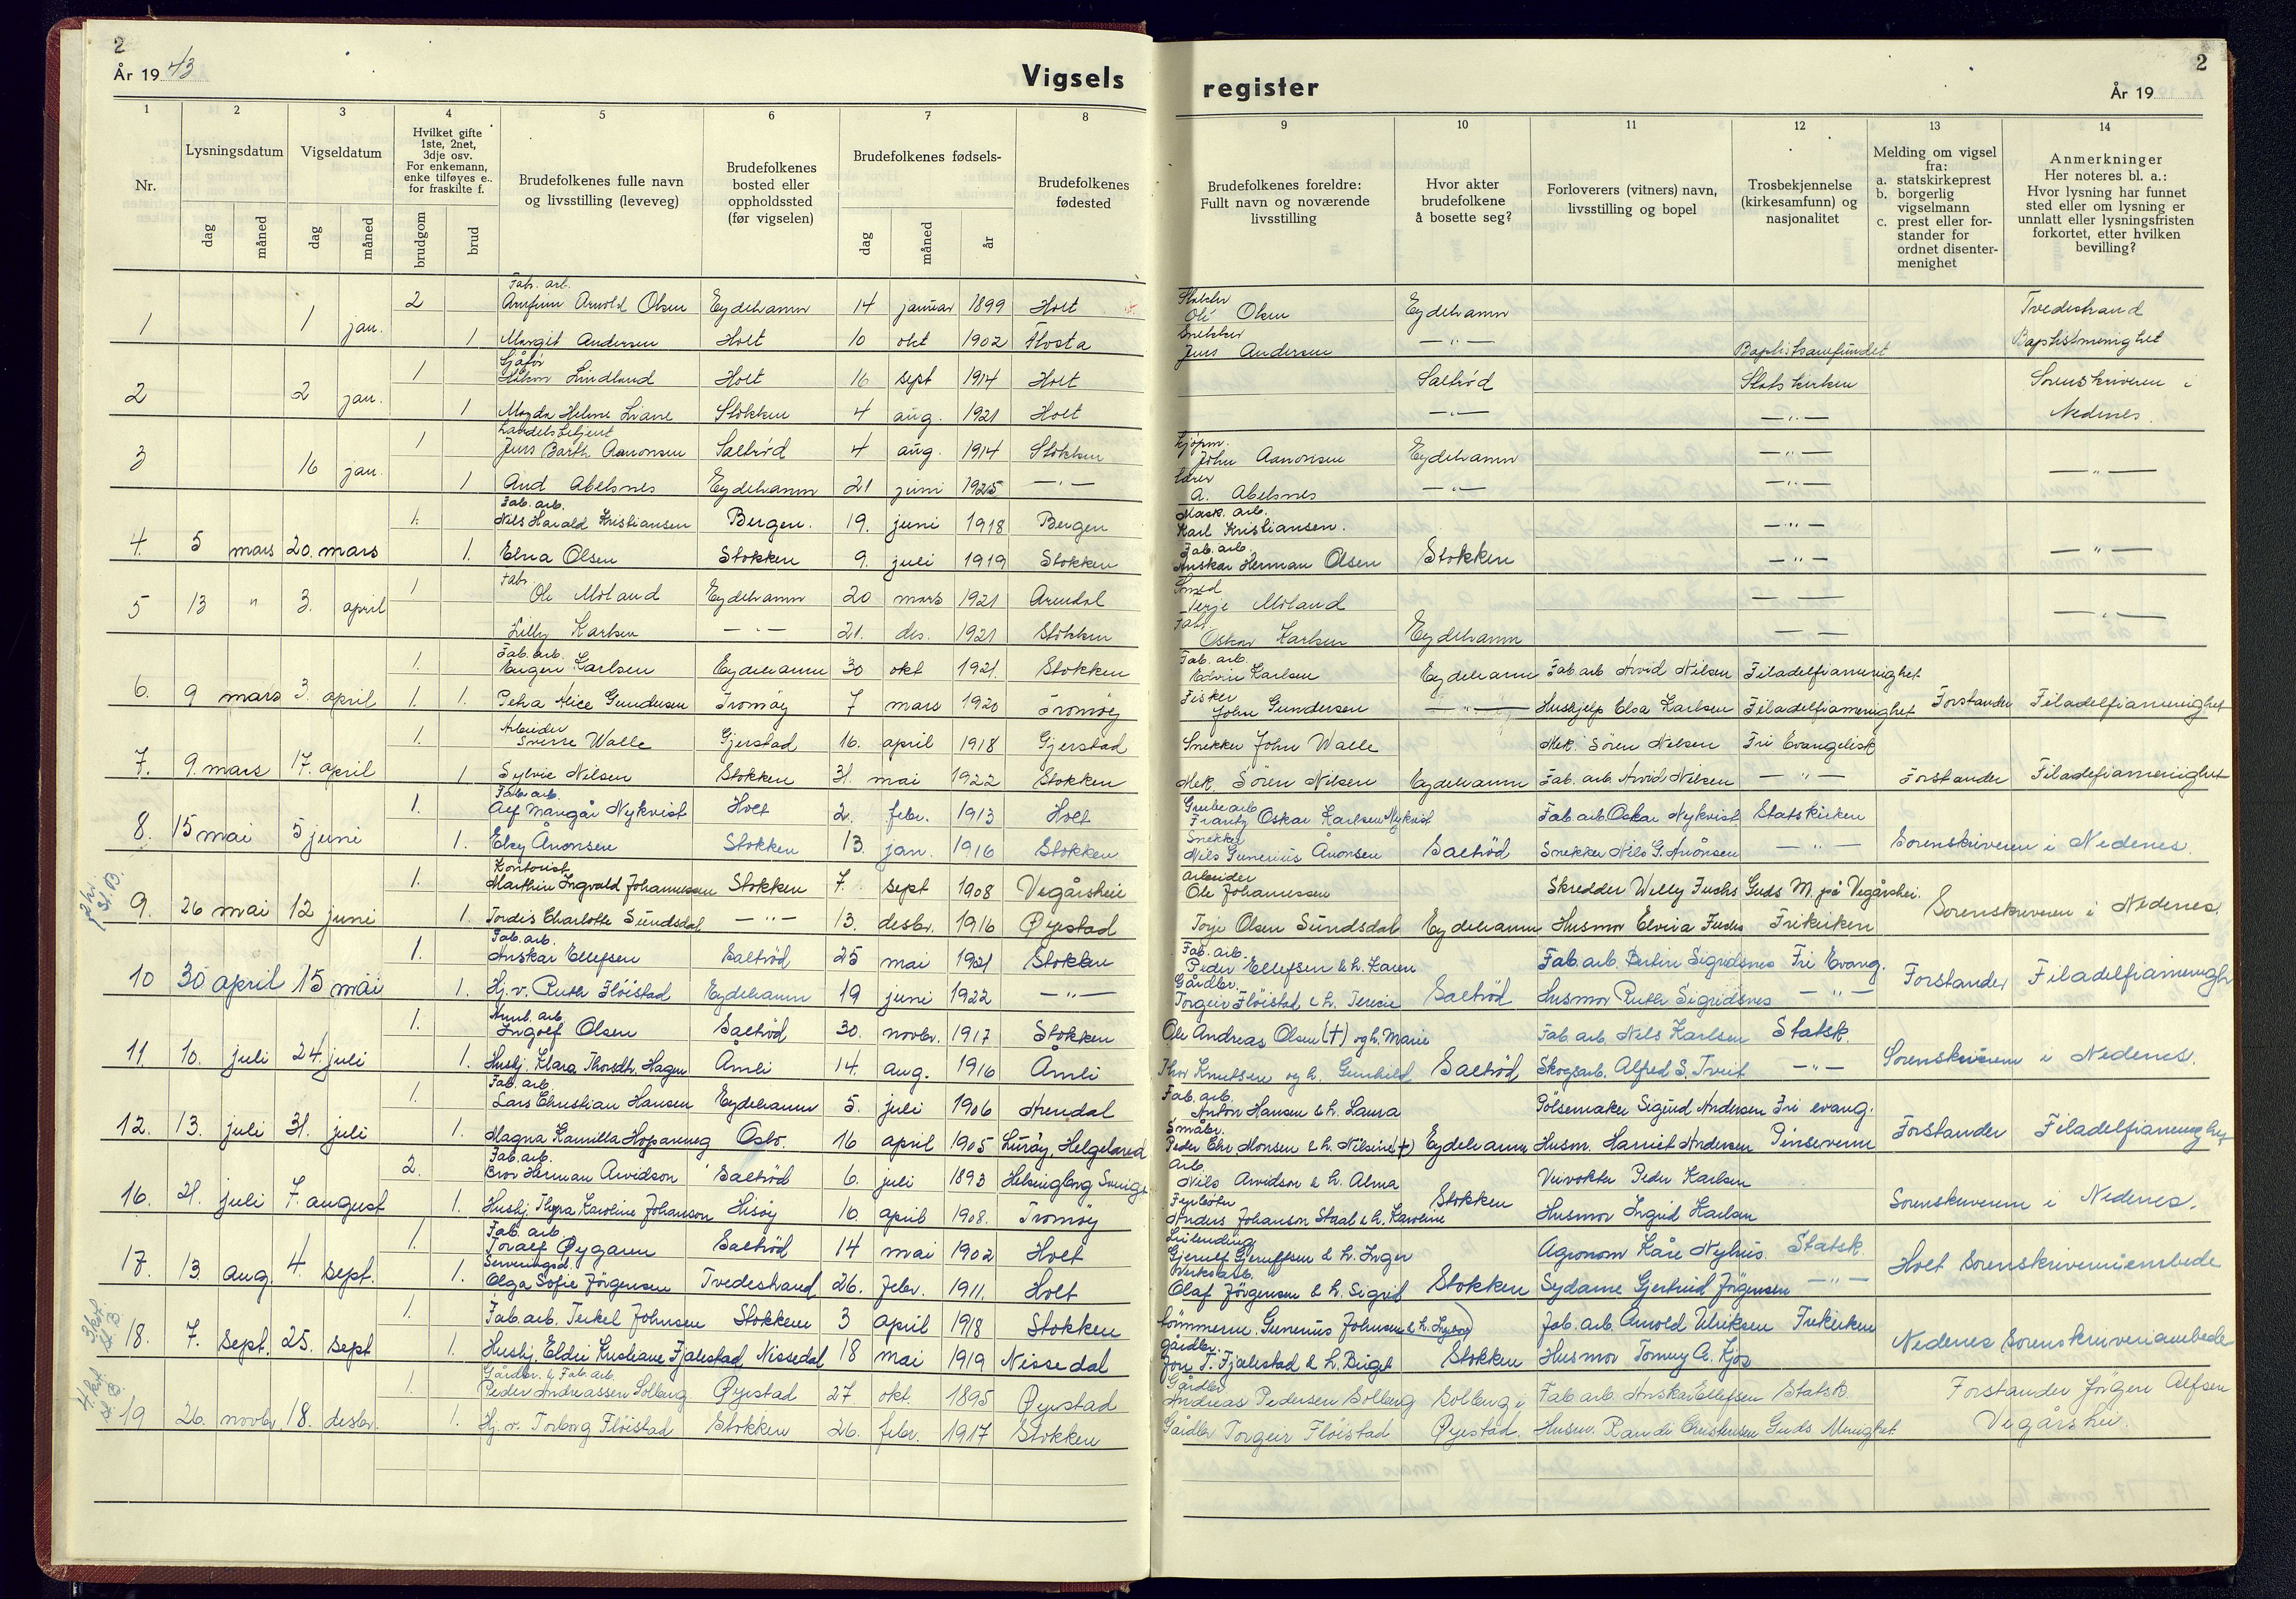 2
År 19 43
Vigsels
register
2
År 19
1
2
3
4
5
6
7
8
9
10
11
12
13
14
Nr.
Lysningsdatum
Vigseldatum
Hvilket gifte
1ste, 2net,
3dje osv.
For enkemann,
enke tilføyes e..
for fraskilte f.
Brudefolkenes fulle navn
og livsstilling (leveveg)
Brudefolkenes
bosted eller
oppholdssted
(før vigselen)
Brudefolkenes fødsels-
Brudefolkenes
fødested
Brudefolkenes foreldre:
Fullt navn og noværende
livsstilling
Hvor akter
brudefolkene
å bosette seg?
Forloverers (vitners) navn,
livsstilling og bopel
Trosbekjennelse
(kirkesamfunn) og
nasjonalitet
Melding om vigsel
fra:
a. statskirkeprest
b. borgerlig
vigselmann
c. prest eller for-
stander for
ordnet disenter-
menighet
Anmerkninger
Her noteres bl. a.:
Hvor lysning har funnet
sted eller om lysning er
unnlatt eller lysningsfristen
forkortet, etter hvilken
bevilling?
dag måned dag måned brudgom brud dag måned år
Fabr. arb.
2 Arnfinn Arnold Olsen Eydehamn 14 januar 1899 Holt Ole Olsen Eydehamn Tvedestrand
1 1 jan.
Snekker
1 Margit Andersen Holt 10 okt 1902 Flosta Jens Andersen — " — Baptistsamfundet Baptistmenighet
Sjåfør
1 Håkon Lindland Holt 16 sept 1914 Holt Saltrød Statskirken Sorenskriveren i
2 2 jan.
1 Magda Helene Liane Stokken 4 aug. 1921 Holt — " — — " — Nedenes.
Handelsbetjent Kjøpm.
1 Jens Barth Aanonsen Saltrød 4 aug. 1914 Stokken John Aanonsen Eydehamn — " —
3 16 jan. — " —
Lærer
1 Aud Abelsnes Eydehamn 21 juni 1925 — " — A. Abelsnes — " — — " —
Fab. arb. Mask. arb.
1. Nils Harald Kristiansen Bergen. 19. juni 1918 Bergen Karl Kristiansen. — " —
4. 5 mars 20. mars — " —
Fab. arb.
1. Elna Olsen Stokken 9. juli 1919 Stokken Anskar Herman Olsen Stokken — " —
Fabr. Smed
1 Ole Moland Eydehamn 20 mars 1921 Arendal Terje Moland — —
5 13 " 3. april — " —
Fabr.
Lilly Karlsen — " — 21. des. 1921 Stokken Oskar Karlsen Eydehamn — —
Fab. arb. Fab. arb.
1. Eugen Karlsen Eydehamn 30 okt 1921. Stokken Edvin Karlsen Eydehamn Fab. arb Arvid Nilsen Filadelfiamenighet
6. 9 mars 3. april Forstander Filadelfiamenighet
Fisker
1. 1. Petra Alice Gundersen Tromøy 7 mars 1920 Tromøy John Gundersen — " — Hushjelp Elsa Karlsen Filadelfiamenighet
Arbeider
1. Sverre Walle Gjerstad 16. april 1918 Gjerstad Snekker John Walle Mek. Sören Nilsen Fri Evangelisk
7. 9. mars 17. april
1 Sylvie Nilsen Stokken 31. mai 1922 Stokken Mek. Sören Nilsen Eydehamn Fab. arb. Arvid Nilsen — " — Forstander Filadelfiamenighet
Fab. arb. Grubearb
1. Alf Mangår Nykvist Holt 2. febr. 1913 Holt Frantz Oskar Karlsen Nykvist Fab arb. Oskar Nykvist Statskirken
8. 15 mai 5 juni Sorenskriveren i Nedenes.
Snekker
1. Elny Ånonsen Stokken 13. jan. 1916 Stokken Nils Gunerius Ånonsen Saltröd Snekker Nils G. Anönsen — " —
Kontorist Arbeider
1. Marthin Ingvald Johannessen Stokken 7. sept 1908 Vegårshei Ole Johannessen Skredder Willy Fuchs Guds M. på Vegårshei.
9. 26 mai 12 juni Sorenskriveren i Nedenes.
1. Tordis Charlotte Sundsdal — " — 13. desbr. 1916 Øyestad Torje Olsen Sundsdal Eydehamn Husmor Elvira Fuchs Frikirken
Fab. arb. Fab. arb.
1. Anskar Ellefsen Saltröd 25 mai 1921 Stokken Peder Ellefsen & h. Karen Fab. arb. Bertin Sigridsnes Fri Evang.
10 30 april 15 mai Forstander Filadelfiamenigh
Gårdbr.
1. Hj. v. Ruth Flöistad Eydehamn 19 juni 1922 — " — Torgeir Flöistad & h. Terecie Saltröd Husmor Ruth Sigridsnes — " —
1. Ingolf Olsen Saltröd 30. novbr. 1917 Stokken Ole Andreas Olsen (†) og h. Marie Fab. arb. Nils Karlsen Statsk.
11. 10. juli 24. juli Sorenskriveren i Nedenes.
1. Hushj. Klara Thorsdtr. Hagen Åmli 14. aug. 1916 Åmli Thor Knutsen og h. Gunhild Saltröd Skogsarb. Alfred S. Tveit — " —
Fab. arb. Fab. arb.
1. Lars Christian Hansen Eydehamn 5. juli 1906 Arendal Anton Hansen & h. Laura Pölsemaker Sigurd Andersen Fri evang.
12. 13. juli 31. juli Forstander Filadelfiamenighet
Småbr.
1. Magna Kamilla Hopareneg Oslo. 16 april 1905 Luröy, Helgeland Peder Chr. Monsen & h. Nilsine (†) Eydehamn Husm. Harriet Andersen Pinsevenn
Fab. arb. arb
2. Bror Herman Arvidson Saltröd 6. juli 1893 Helsingborg Sverige Nils Arvidson & h. Alma Veivokter Peder Karlsen
16. 21. juli 7. august Stokken Sorenskriveren i Nedenes.
1. Hushj. Thyra Karoline Johanson Hisöy 16 april 1908. Tromöy Anders Johanson Staal & h. Karoline Husmor Ingrid Karlsen
Fab. arb.
1. Toralf Øygaren Saltröd 14 mai 1902 Holt Gjerulf Gjerulfsen & h. Inger Agronom Kåre Nyhus. Statsk.
17. 13. aug. 4. sept. Holt Sorenskriveriembede
Serveringsd. Verkstarb.
1. Olga Sofie Jörgensen Tvedestrand 26. febr. 1911. Holt Olaf Jörgensen & h. Sigrid Stokken Sydame Gjertrud Jörgensen — " —
1. Fab. arb. Terkel Johnsen Stokken 3 april 1918 Stokken Tömmerm. Gunerius Johnsen & h. Ingborg Fab. arb. Arnold Ulriksen Frikirken
18. 7. sept. 25. sept Nedenes Sorenskriveriembede
Gårdbr.
1. Hushj. Eldri Kristiane Fjalestad Nissedal 18 mai 1919 Nissedal Jon T. Fjalestad & h. Birget Stokken Husmor Tomny A. Kjos
Gårdbr. & Fab. arb. Gårdbr
1. Peder Andreassen Solberg Øyestad 27. okt. 1895 Øyestad Andreas Pedersen Solberg Solberg i Fab. arb. Anskar Ellefsen Statsk. Forstander Jörgen Alfsen
19 26. novbr 18. desbr.
1. Hj. v. Torborg Flöistad Stokken 26. febr. 1917 Stokken Gårdbr Torgeir Flöistad Øyestad. Husm. Randi Christensen Guds Menighet. Vegårshei.